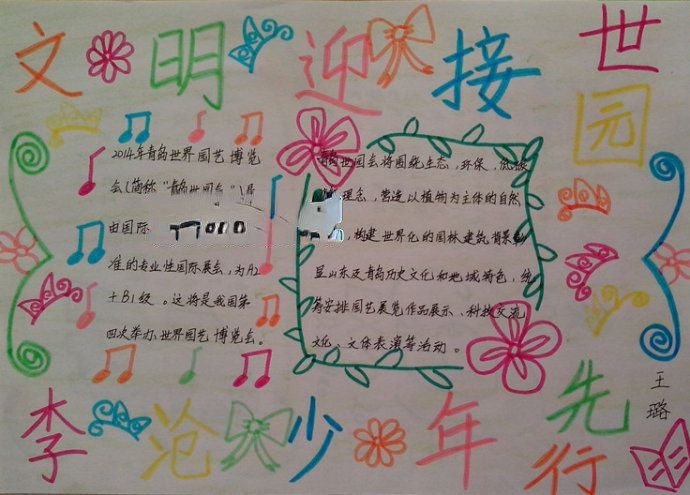 文明迎接世园
2014年青岛世界园艺博览
会（简称“青岛世园会”）是
由国际
准的专业性国际展会，为A2
+B1级。这将是我国第
四次举办世界园艺博览会。
青岛世园会将围绕生态，环保，低碳
理念，营造以植物为主体的自然
，构建世界化的园林建筑背景，
显山东及青岛历史文化和地域特色，统
筹安排园艺展览作品展示、科技交流
文化、文体表演等活动。
李沧少年先行
王璐